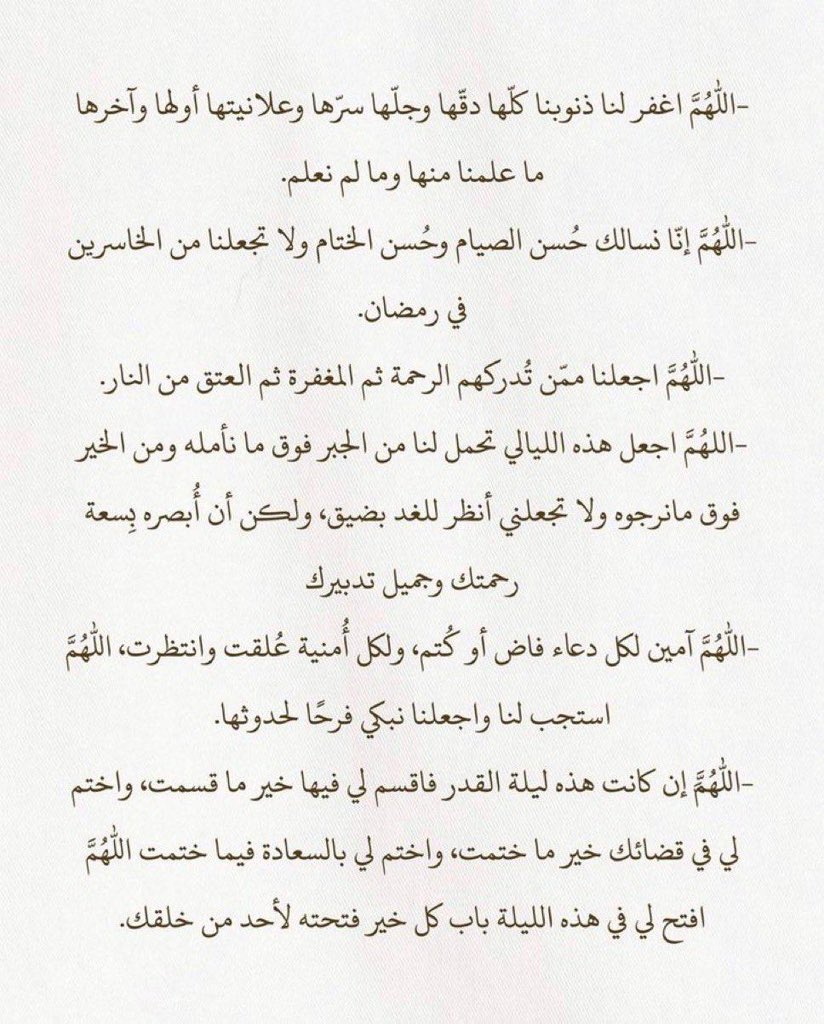 -اللّٰهُمَّ اغفر لنا ذنوبنا كلّها دقّها وجلّها سرّها وعلانيتها أولها وآخرها
ما علمنا منها وما لم نعلم.
-اللّٰهُمَّ إنّا نسالك حُسن الصيام وحُسن الختام ولا تجعلنا من الخاسرين
في رمضان.
-اللّٰهُمَّ اجعلنا ممّن تُدركهم الرحمة ثم المغفرة ثم العتق من النار.
-اللهُمَّ اجعل هذه الليالي تحمل لنا من الجبر فوق ما نأمله ومن الخير
فوق مانرجوه ولا تجعلني أنظر للغد بضيق، ولكن أن أُبصره بِسعة
رحمتك وجميل تدبيرك
-اللّٰهُمَّ آمين لكل دعاء فاض أو كُتم، ولكل أُمنية عُلقت وانتظرت، اللّٰهُمَّ
استجب لنا واجعلنا نبكي فرحًا لحدوثها.
-اللّٰهُمَّ إن كانت هذه ليلة القدر فاقسم لي فيها خير ما قسمت، واختم
لي في قضائك خير ما ختمت، واختم لي بالسعادة فيما ختمت اللّٰهُمَّ
افتح لي في هذه الليلة باب كل خير فتحته لأحد من خلقك.